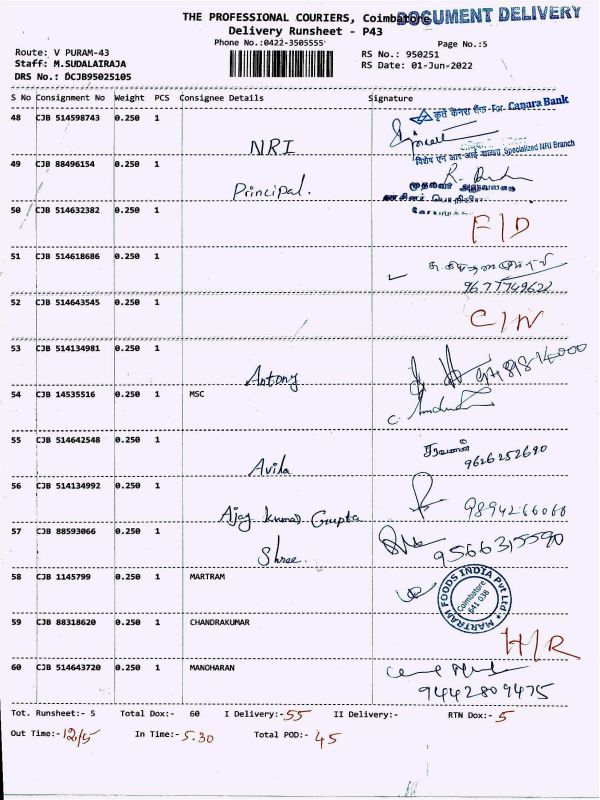 THE PROFESSIONAL COURIERS, Coimbatore
DOCUMENT DELIVERY
Delivery Runsheet - P43
Phone No.:0422-3505555
Page No.:5
Route: V PURAM-43
RS No.: 950251
Staff: M.SUDALAIRAJA
RS Date: 01-Jun-2022
DRS No.: DCJB95025105
S No Consignment No Weight PCS Consignee Details Signature
48 CJB 514598743 0.250 1 NRI
कृते केनरा बैंक-For Canara Bank
Specialized NRI Branch
49 CJB 88496154 0.250 1 Principal.
50 CJB 514632382 0.250 1
F/D
51 CJB 514618686 0.250 1
9677749622
52 CJB 514643545 0.250 1
C/N
53 CJB 514134981 0.250 1 Antony
54 CJB 14535516 0.250 1 MSC
55 CJB 514642548 0.250 1 Avila
சரவணன்
9626252690
56 CJB 514134992 0.250 1 Ajay Kumar Gupta
9894266066
57 CJB 88593066 0.250 1 Shree.
9566315590
58 CJB 1145799 0.250 1 MARTRAM
MARTRAM FOODS INDIA Pvt Ltd
Coimbatore
641 038
59 CJB 88318620 0.250 1 CHANDRAKUMAR
H/R
60 CJB 514643720 0.250 1 MANOHARAN
9442809475
Tot. Runsheet:- 5 Total Dox:- 60 I Delivery:-55 II Delivery:- RTN Dox:-5
Out Time:-12/5 In Time:-5.30 Total POD:-45